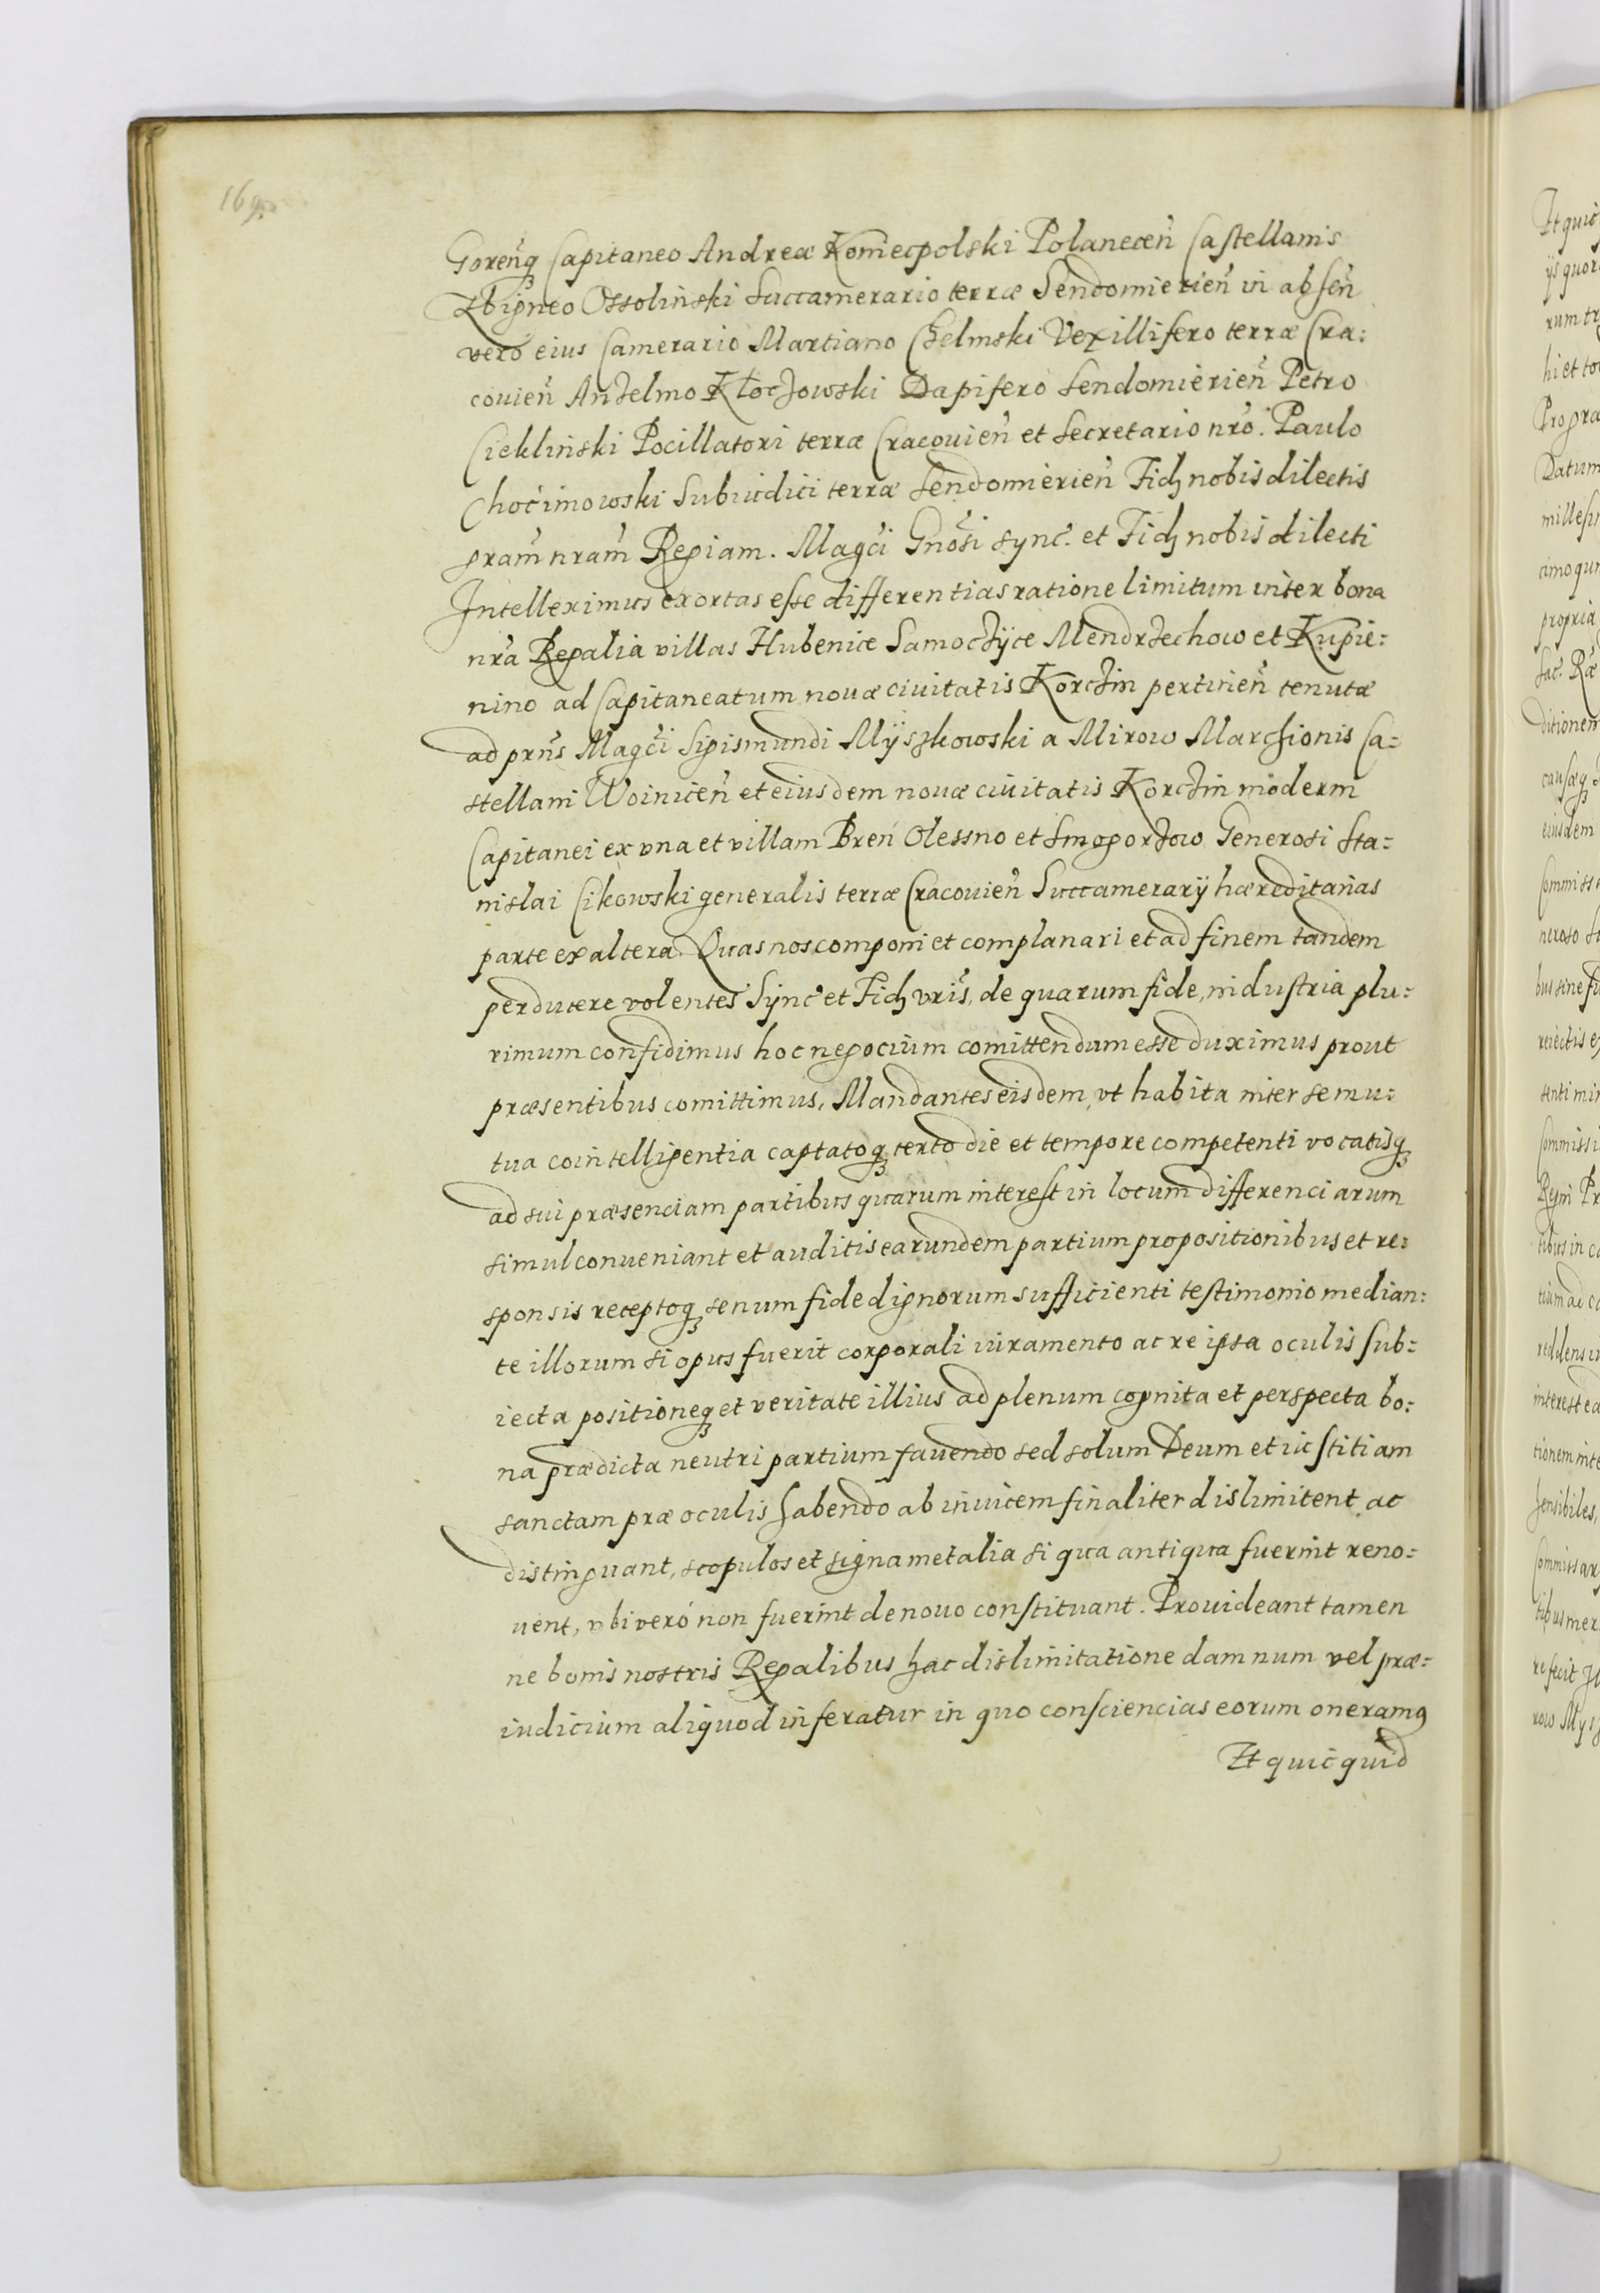 Goreng Capitaneo Andreæ Koniecpolski Polanecen Castellanis
Zbigneo Ossolinski Succamerario terræ Sendomirien in absen
vero eius Camerario Martiano Chelmski Vexillifero terræ Cra:
couien Anzelmo Kłoczowski Dapifero Sendomierien Petro
Cieklinski Pocillatori terræ Cracouien et Secretario nro. Paulo
Chocimowski Subiudici terræ Sendomierien Fidꝫ nobis dilectis
gram nram Regiam. Magci Gnosi sync. et Fidꝫ nobis dilecti
Intelleximus exortas esse differentias ratione limitum inter bona
nra Regalia villas Hubenice Samoczÿce Mendrzechow et Kupie:
nino ad Capitaneatum nouæ ciuitatis Korczin pertinen tenutæ
ad prns Magci Sigismundi Mÿszkowski a Mirow Marchionis Ca:
stellani Woinicen et eiusdem nouæ ciuitatis Korczin moderni
Capitanei ex vna et villam Bren Olessno et Smogorzow Generosi Sta:
nislai Cikowski generalis terræ Cracouien Succamerarÿ hæreditarias
parte ex altera. Quas nos componi et complanari et ad finem tandem
perducere volentes Sync et Fidꝫ vris, de quarum fide, industria plu:
rimum confidimus hoc negocium comittendum esse duximus prout
præsentibus comittimus, Mandantes eisdem, vt habita inter se mu:
tua cointelligentia captatoqꝫ certo die et tempore competenti vocatisqꝫ
ad sui præsenciam partibus quarum interest in locum differenciarum
simul conueniant et auditis earundem partium propositionibus et re:
sponsis receptoqꝫ senum fide dignorum sufficienti testimonio median:
te illorum si opus fuerit corporali iuramento ac re ipsa oculis sub:
iecta positioneqꝫ et veritate illius ad plenum cognita et perspecta bo:
na prædicta neutri partium fauendo sed solum Deum et iustitiam
sanctam præ oculis habendo ab inuicem finaliter dislimitent ac
distinguant, scopulos et signa metalia si qua antiqua fuerint reno:
uent, vbi veró non fuerint de nouo constituant. Prouideant tamen
ne bonis nostris Regalibus hac dislimitatione damnum vel præ:
iudicium aliquod inferatur in quo consciencias eorum oneramꝰ
Et quicquid